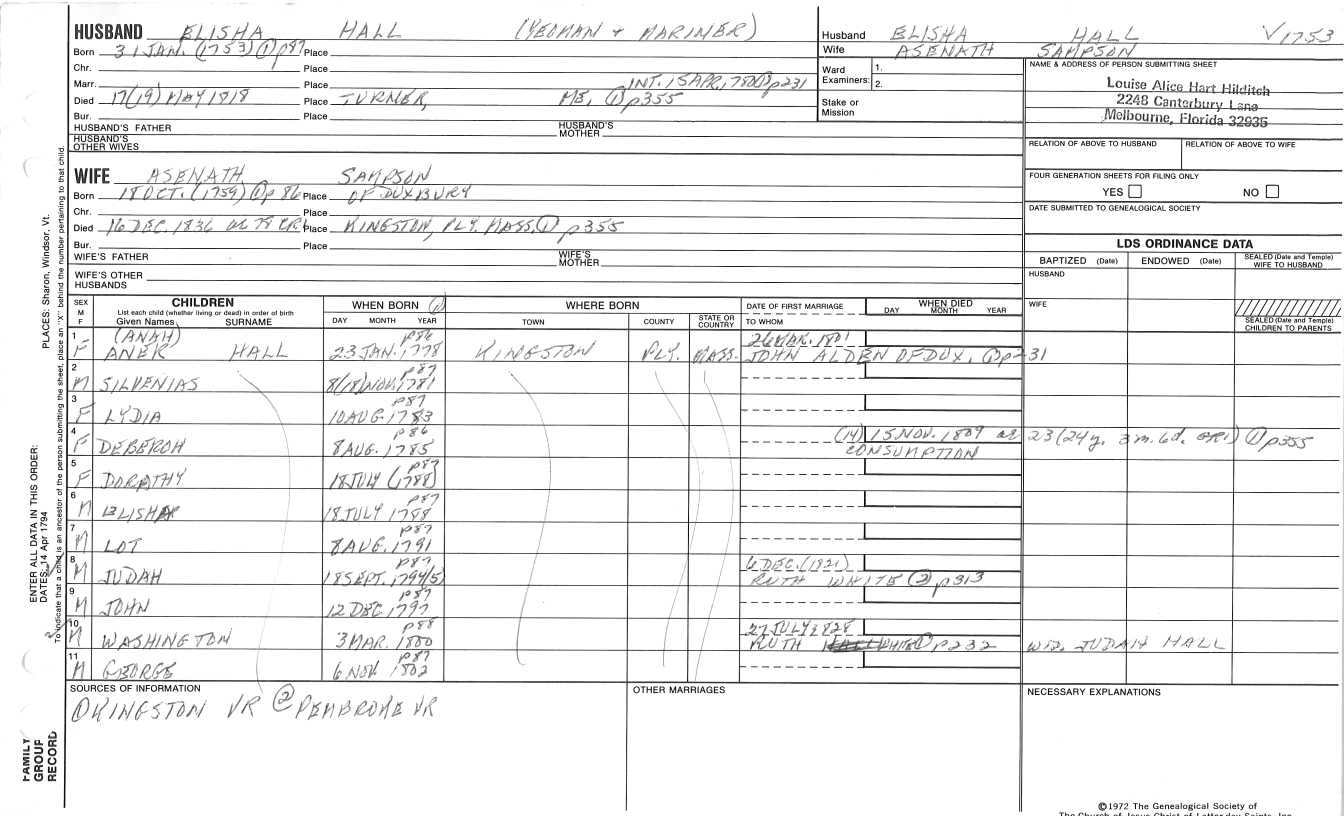 HUSBAND ELISHA HALL (YEOMAN & MARINER)
Born 31 JAN. (1753) ① p87 Place
Chr. Place
Marr. Place INT. 15 APR. 1780 ① p231
Died 17(19) MAY 1818 Place TURNER, ME, ① p355
Bur. Place
HUSBAND'S FATHER HUSBAND'S MOTHER
HUSBAND'S OTHER WIVES
WIFE ASENATH SAMPSON
Born 18 OCT. (1759) ① p 86 Place OF DUXBURY
Chr. Place
Died 16 DEC. 1836 ae 78 GR1 Place KINGSTON, PLY. MASS. ① p355
Bur. Place
WIFE'S FATHER WIFE'S MOTHER
WIFE'S OTHER HUSBANDS
Husband ELISHA HALL V1753
Wife ASENATH SAMPSON
Ward Examiners: 1.
2.
Stake or Mission
NAME & ADDRESS OF PERSON SUBMITTING SHEET
Louise Alice Hart Hilditch
2248 Canterbury Lane
Melbourne, Florida 32935
RELATION OF ABOVE TO HUSBAND RELATION OF ABOVE TO WIFE
FOUR GENERATION SHEETS FOR FILING ONLY
YES NO
DATE SUBMITTED TO GENEALOGICAL SOCIETY
LDS ORDINANCE DATA
BAPTIZED (Date) ENDOWED (Date) SEALED (Date and Temple) WIFE TO HUSBAND
HUSBAND
WIFE
SEALED (Date and Temple) CHILDREN TO PARENTS
SEX M F CHILDREN WHEN BORN ① WHERE BORN DATE OF FIRST MARRIAGE WHEN DIED
List each child (whether living or dead) in order of birth
Given Names SURNAME DAY MONTH YEAR TOWN COUNTY STATE OR COUNTRY TO WHOM DAY MONTH YEAR
1 (ANAH) p86 26 MAR. 1801
F ANER HALL 23 JAN. 1778 KINGSTON PLY. MASS. JOHN ALDEN OF DUX. ① p231
2 p87
M SILVENIAS 8(18) NOV. 1781
3 p87
F LYDIA 10 AUG. 1783
4 p86 (14) 15 NOV. 1809 ae 23 (24y. 3m. 6d. GR1) ① p355
F DEBEROH 8 AUG. 1785 CONSUMPTION
5 p87
F DORATHY 18 JULY (1788)
6 p87
M ELISHA 18 JULY 1788
7 p87
M LOT 8 AUG. 1791
8 p87 6 DEC. (1821)
M JUDAH 18 SEPT. 1794(5) RUTH WHITE ② p313
9 p87
M JOHN 12 DEC. 1797
10 p88 27 JULY 1828
M WASHINGTON 3 MAR. 1800 RUTH WHITE ① p232 WID. JUDAH HALL
11 p87
M GEORGE 6 NOV. 1802
SOURCES OF INFORMATION OTHER MARRIAGES NECESSARY EXPLANATIONS
① KINGSTON VR ② PEMBROKE VR
FAMILY GROUP RECORD
ENTER ALL DATA IN THIS ORDER:
DATES: 14 Apr 1794 PLACES: Sharon, Windsor, Vt.
To indicate that a child is an ancestor of the person submitting the sheet, place an "X" behind the number pertaining to that child.
©1972 The Genealogical Society of
The Church of Jesus Christ of Latter-day Saints, Inc.